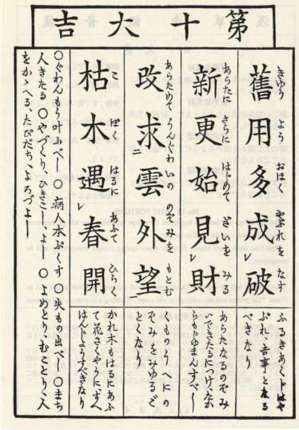 第十大吉
舊用多成レ破
きゆう よう おほく やぶれを なす
ふるきあくじはや
ぶれ、吉事と在る
べきなり
新更始見レ財
あらたに さらに はじめて ざいを みる
あらたなるのぞみ
いできたるにつけ、たか
すべし
改求二雲外望一
あらためて うんぐわいの のぞみを もとむ
くものうへにの
ぞみをみゆるご
とくなり
枯木遇レ春開
こ ぼく はるに あふて ひらく
かれ木もはるにあふ
て花さくやうに、すへ
はんじようすべきなり
○ぐわんもう叶ふべし ○病人本ぷくす ○失もの出べし ○まち
人きたる ○やづくり、ひきこし、よし ○よめとり、むことり、人
をかゝへる、たびだち、よろづよし